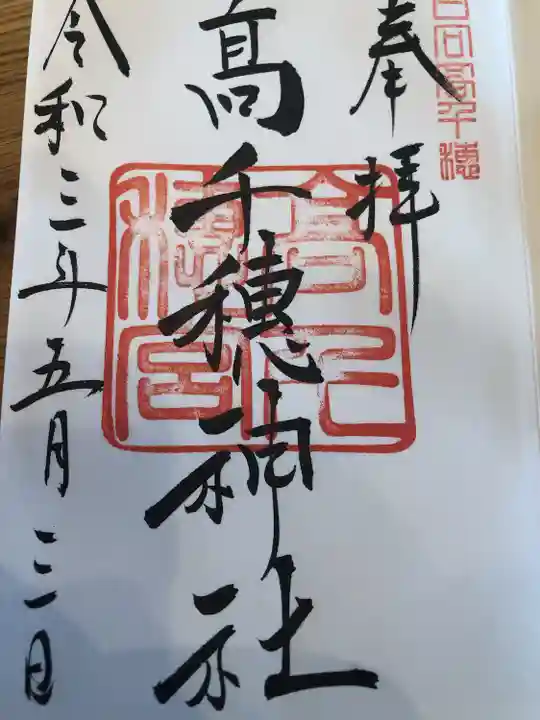 日向高千穂
奉拝
高千穂宮
髙千穂神社
令和三年五月三日